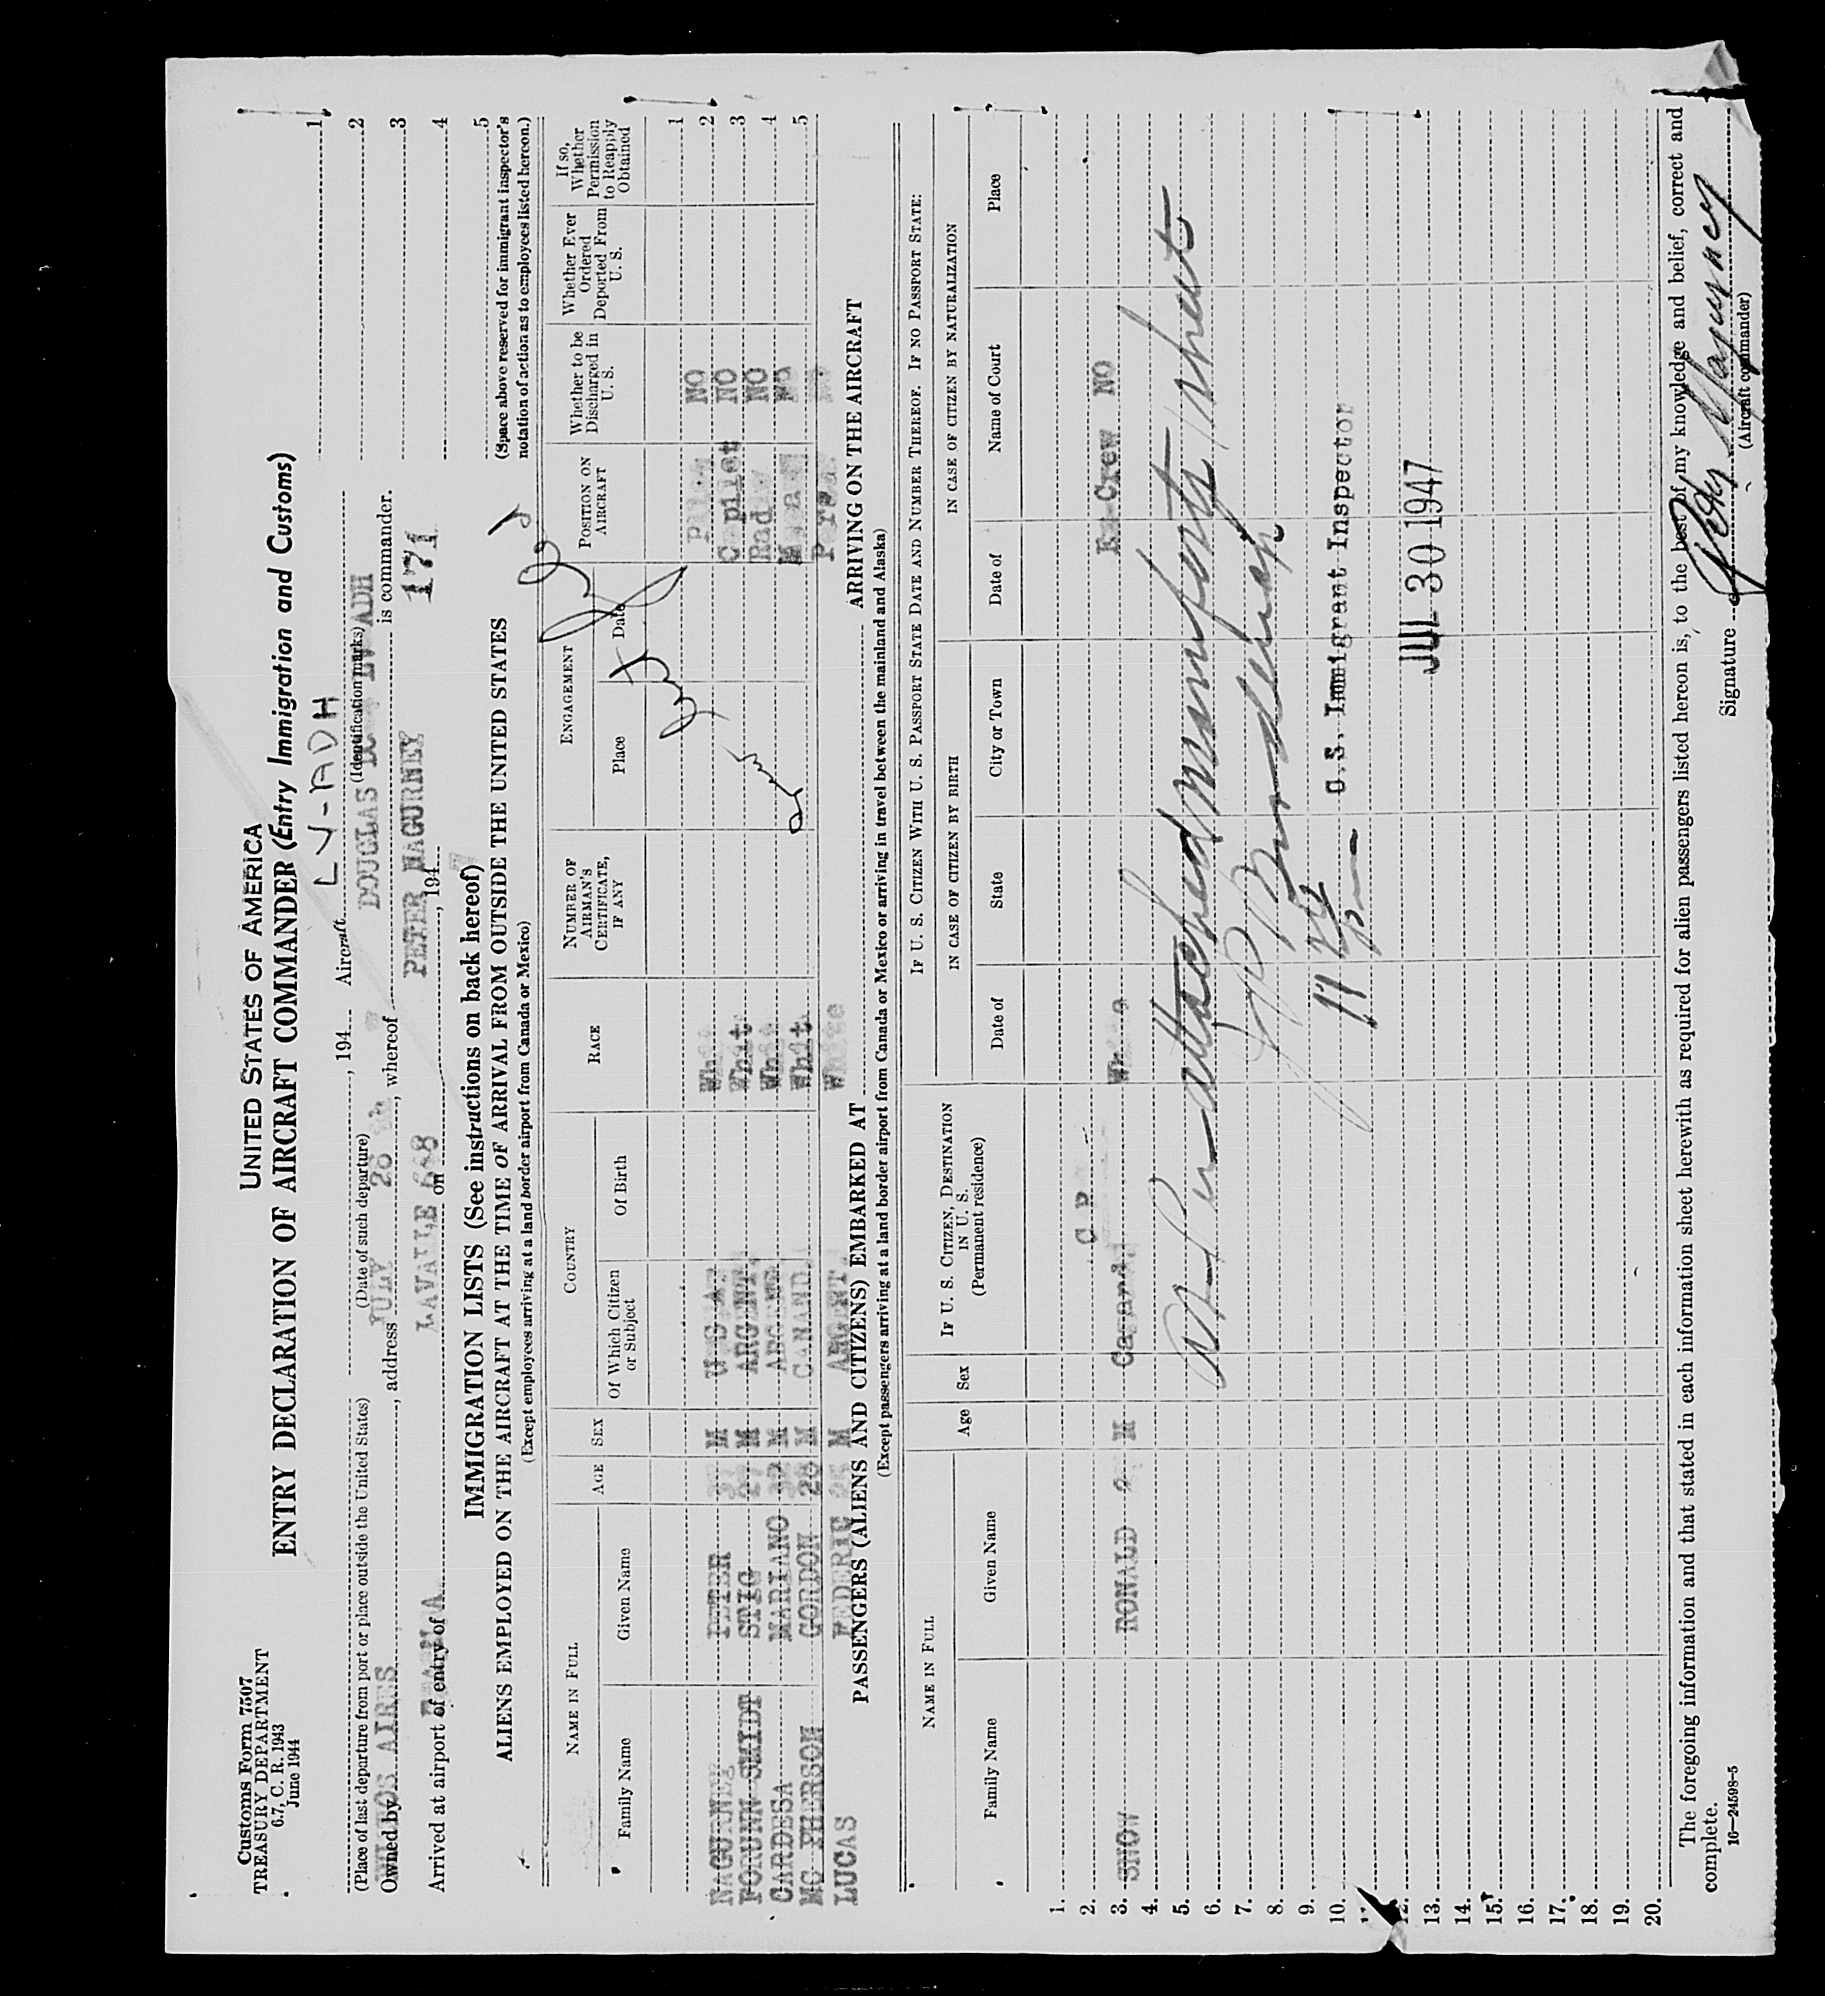 Customs Form 7507
TREASURY DEPARTMENT
6.7, C. R. 1943
June 1944
UNITED STATES OF AMERICA
ENTRY DECLARATION OF AIRCRAFT COMMANDER (Entry Immigration and Customs)
LV-ADH
, 194 Aircraft 1
(Place of last departure from port or place outside the United States) (Date of such departure) (Identification marks) 2
BUENOS AIRES JULY 26 DOUGLAS ADH
Owned by , address , whereof is commander. 3
LAVALLE 668 PETER NAGURNEY 171
Arrived at airport of entry of on , 194 4
5
IMMIGRATION LISTS (See instructions on back hereof)
(Space above reserved for immigrant inspector's notation of action as to employees listed hereon.)
ALIENS EMPLOYED ON THE AIRCRAFT AT THE TIME OF ARRIVAL FROM OUTSIDE THE UNITED STATES
(Except employees arriving at a land border airport from Canada or Mexico)
NAME IN FULL AGE SEX COUNTRY RACE NUMBER OF AIRMAN'S CERTIFICATE, IF ANY ENGAGEMENT POSITION ON AIRCRAFT Whether to be Discharged in U. S. Whether Ever Ordered Deported From U. S. If so, Whether Permission to Reapply Obtained
Family Name Given Name Of Which Citizen or Subject Of Birth Place Date
1
NAGURNEY PETER M White NO 2
FORUNN SMYDT STIG M ARGENT. White Copilot NO 3
CARDESA MARIANO M ARGENT White Rad NO 4
MC PHERSON GORDON 28 M CANAND. White NO 5
LUCAS M ARGENT. White
PASSENGERS (ALIENS AND CITIZENS) EMBARKED AT ARRIVING ON THE AIRCRAFT
(Except passengers arriving at a land border airport from Canada or Mexico or arriving in travel between the mainland and Alaska)
NAME IN FULL Age Sex IF U. S. CITIZEN, DESTINATION IN U. S. (Permanent residence) IF U. S. CITIZEN WITH U. S. PASSPORT STATE DATE AND NUMBER THEREOF. IF NO PASSPORT STATE:
IN CASE OF CITIZEN BY BIRTH IN CASE OF CITIZEN BY NATURALIZATION
Family Name Given Name Date of State City or Town Date of Name of Court Place
1.
2.
3. SNOW RONALD M Canand Crew NO
4.
5.
6.
7.
8.
9.
10. U.S. Immigrant Inspector
12. JUL 30 1947
13.
14.
15.
16.
17.
18.
19.
20.
The foregoing information and that stated in each information sheet herewith as required for alien passengers listed hereon is, to the best of my knowledge and belief, correct and complete.
16—24598-5
Signature
(Aircraft commander)